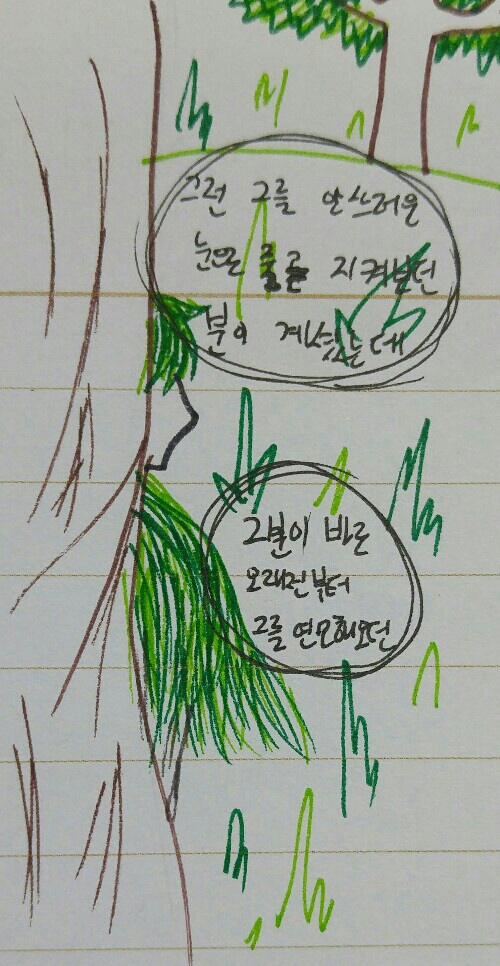 그런 그를 안쓰러운
눈으로 지켜보던
분이 계셨는데
그분이 바로
오래전부터
그를 연모해오던